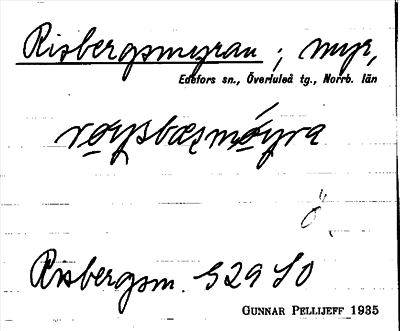 Risbergsmyran ; myr,
Edefors sn., Överluleå tg., Norrb. län
røysbæsmøyra
Ö
Risbergsm. 529 SO
GUNNAR PELLIJEFF 1935